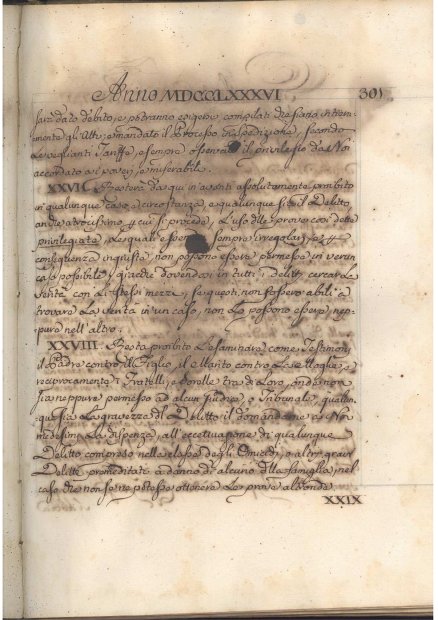 Anno MDCCLXXXVI 301
sarà dato debito, e potranno esigere compilati che siano intera-
mente gli Atti, e mandato il Processo in spedizione, secondo
le veglianti Tariffe, e sempre osservato il privilegio da Noi
accordato ai poveri, e miserabili.
XXVII. Resterà da qui in avanti assolutamente proibito
in qualunque caso, e circostanza, e qualunque sia il Delitto
anche atrocissimo per cui si proceda, l'uso delle prove così dette
privilegiate, le quali essendo sempre irregolari, e per
conseguenza ingiuste, non possono essere permesse in verun
caso possibile, giacchè dovendosi in tutti i delitti cercare la
verità con gli stessi mezzi, se questi non fossero abili a
trovare la verità in un caso, non lo possono essere nep-
pure nell'altro.
XXVIII. Resta proibito l'esaminare come Testimonj
il Padre contro il Figlio, il Marito contro la Moglie, e
reciprocamente i Fratelli, e Sorelle tra di Loro, onde non
sia neppure permesso ad alcun Giudice, o Tribunale, qualun-
que sia la gravezza del Delitto il domandarne a Noi
medesimi la dispensa, all'eccettuazione di qualunque
Delitto compreso nella classe degli Omicidj, o altri gravi
Delitti premeditati a danno di alcuno della famiglia, nel
caso che non se ne potesse ottenere la prova altronde.
XXIX